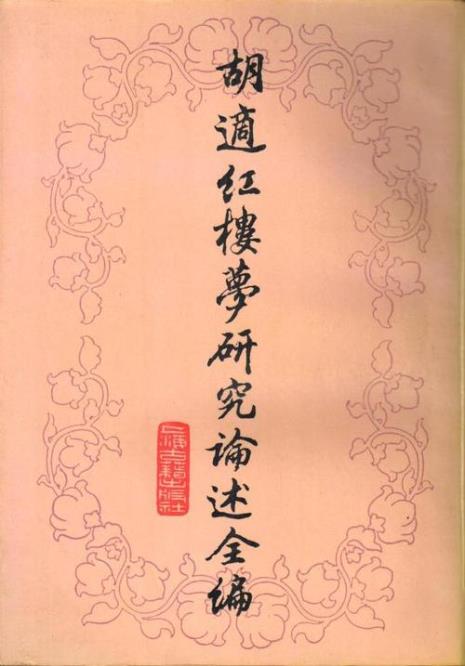 胡適红樓夢研究論述全编
上海古籍出版社